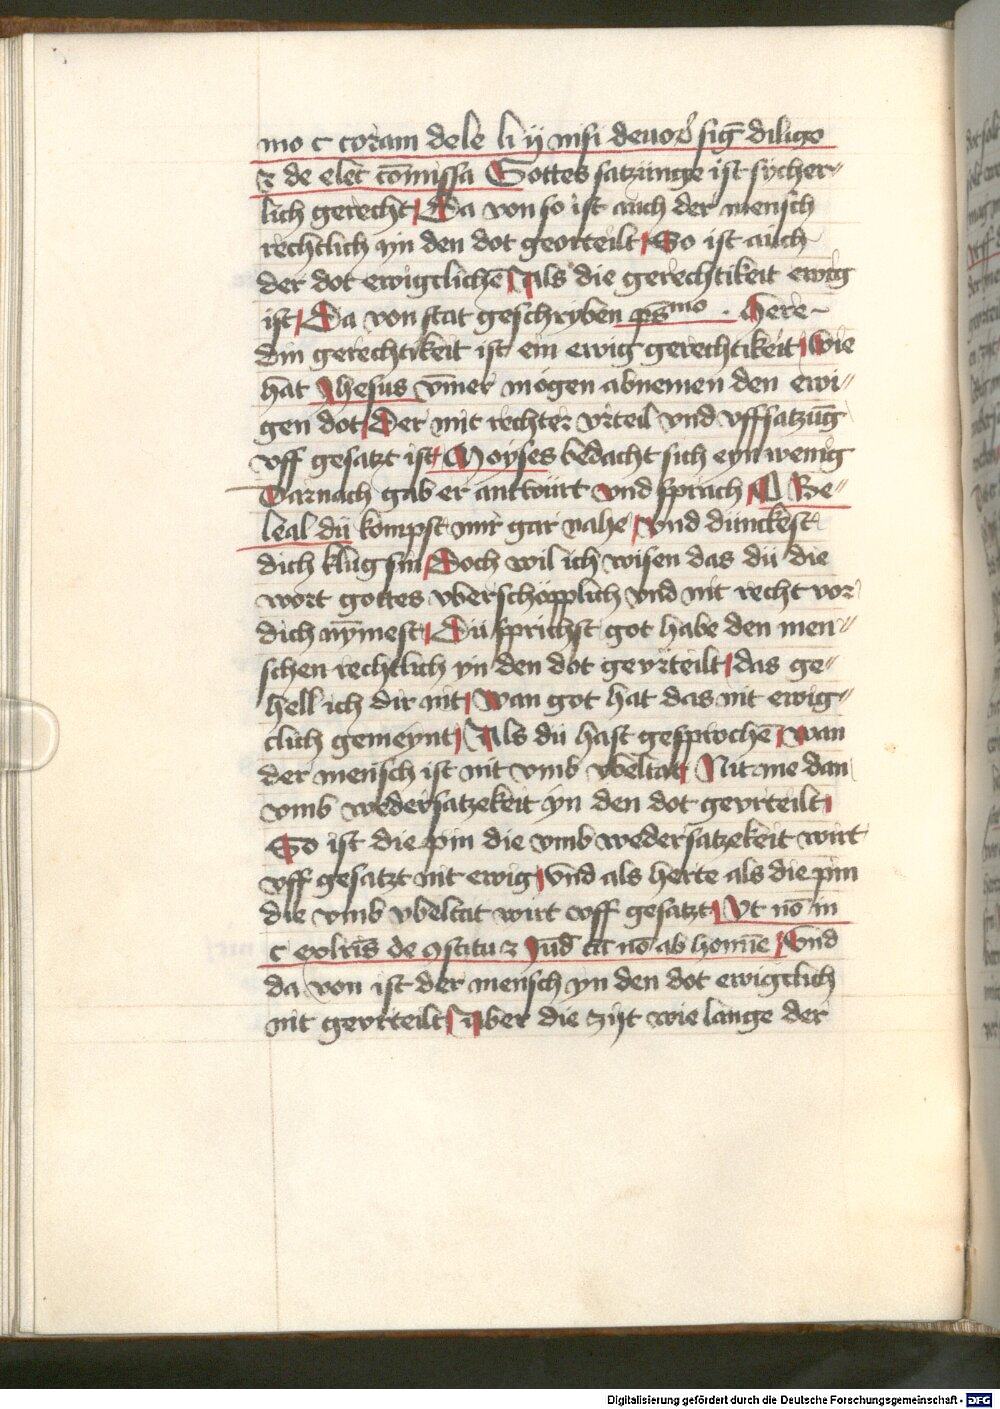 mo c coram dele li ij nisi deuor sig dilige
z de elec comissa Gottes satzunge ist sycher-
lich gerecht Da von so ist auch der mensch
rechtlich yn den dot georteilt So ist auch
der dot ewigclichē Als die gerechtikeit ewig
ist Da von stat geschryben psmo . Here
din gerechtikeit ist ein ewig gerechtikeit Wie
hat Jhesus ym̄er mogen abnemen den ewi-
gen dot Der mit rechter vrteil vnd vffsatzūg
vff gesatzt ist Moyses bedacht sich eyn wenig
Darnach gab er antwurt vnd sprach O Be-
leal du kompst mir gar nahe vnd dunckest
dich klug sin Doch wil ich wisen das du die
wort gottes vberschopplich vnd nit recht vor
dich nȳmest Du sprichst got habe den men-
schen rechtlich yn den dot gevrteilt das ge-
hell ich dir nit Wan got hat das nit ewig-
clich gemeynt Als du hast gesprochē wan
der mensch ist nit vmb vbeltat Nit me dan
vmb wedersatzekeit yn den dot gevrteilt
So ist die pin die vmb wedersatzekeit wirt
vff gesatzt nit ewig Vnd als herte als die pin
die vmb vbeltat wirt voff gesatzt Vt nō in
c de nō ab Vnd
da von ist der mensch yn den dot ewigclich
nit gevrteilt Aber die zijt wie lange der
Digitalisierung gefördert durch die Deutsche Forschungsgemeinschaft - DFG